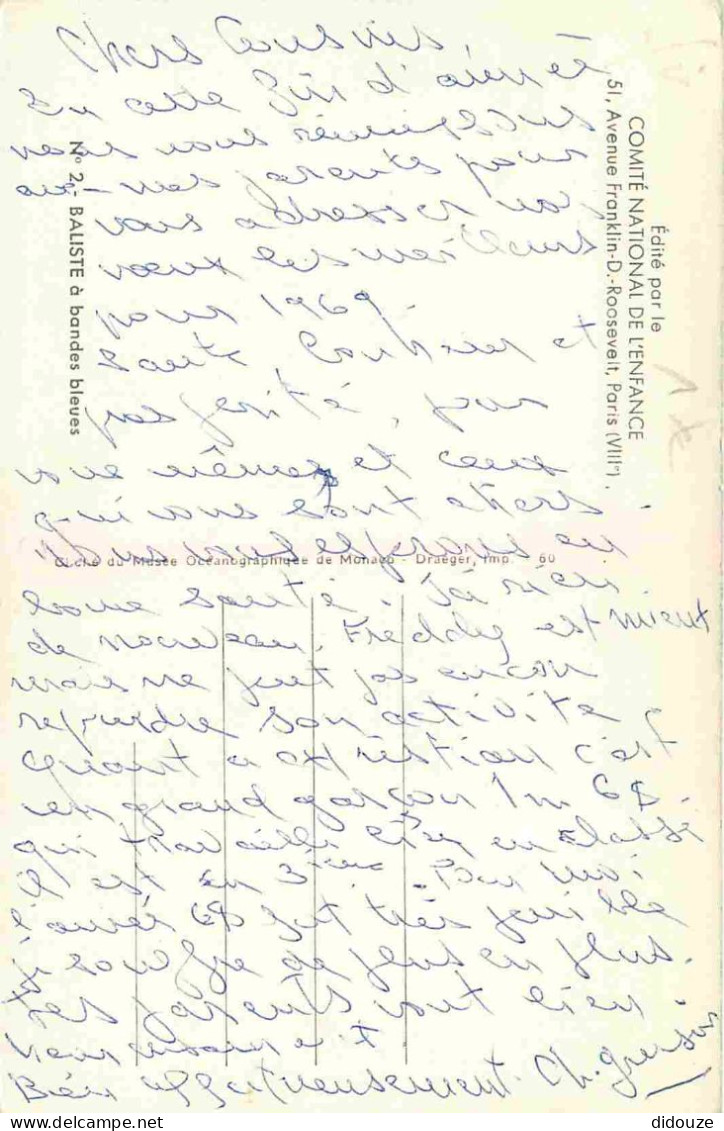 Chers Cousins,
En cette fin d'année
nous nous réunissons
avec mes parents pour
vous adresser nos
vœux les meilleurs
pour 1969.
Santé, Bonheur et
prospérité, pour
vous mêmes et ceux
qui vous sont chers.
Nous vous espérons en
bonne santé. Ici rien
de nouveau. Freddy est mieux
mais ne peut pas encore
reprendre son activité
Quant a Christian c'est
un grand garçon 1m 68.
qui travaille bien en classe
il est en 3ième. Pour moi
l'année 68 fut très pénible
je souffre de plus en plus.
Mes parents vont bien.
Bien affectueusement. Ch.
Édité par le
COMITÉ NATIONAL DE L'ENFANCE
51, Avenue Franklin-D.-Roosevelt, Paris (VIIIe)
N° 2.- BALISTE à bandes bleues
Cliché du Musée Océanographique de Monaco - Draeger, Imp. - 60
1 €
© didouze